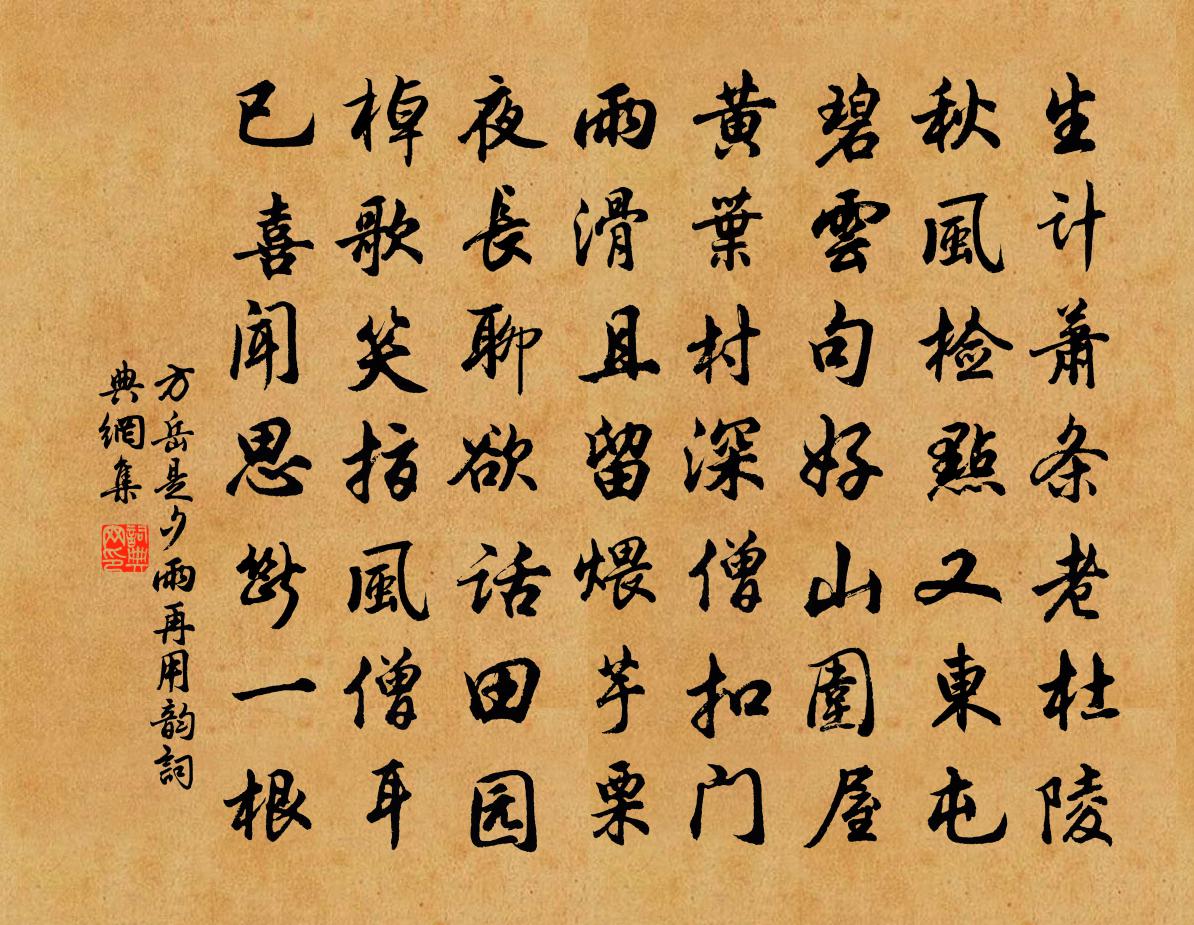 生计萧条老杜陵
秋風检點又東屯
碧雲句好山圍屋
黄葉村深僧扣门
雨滑且留煨芋栗
夜長聊欲话田园
棹歌笑指風僧耳
已喜闻思斷一根
方岳是夕雨再用韵詞
典網集
詞典
网印